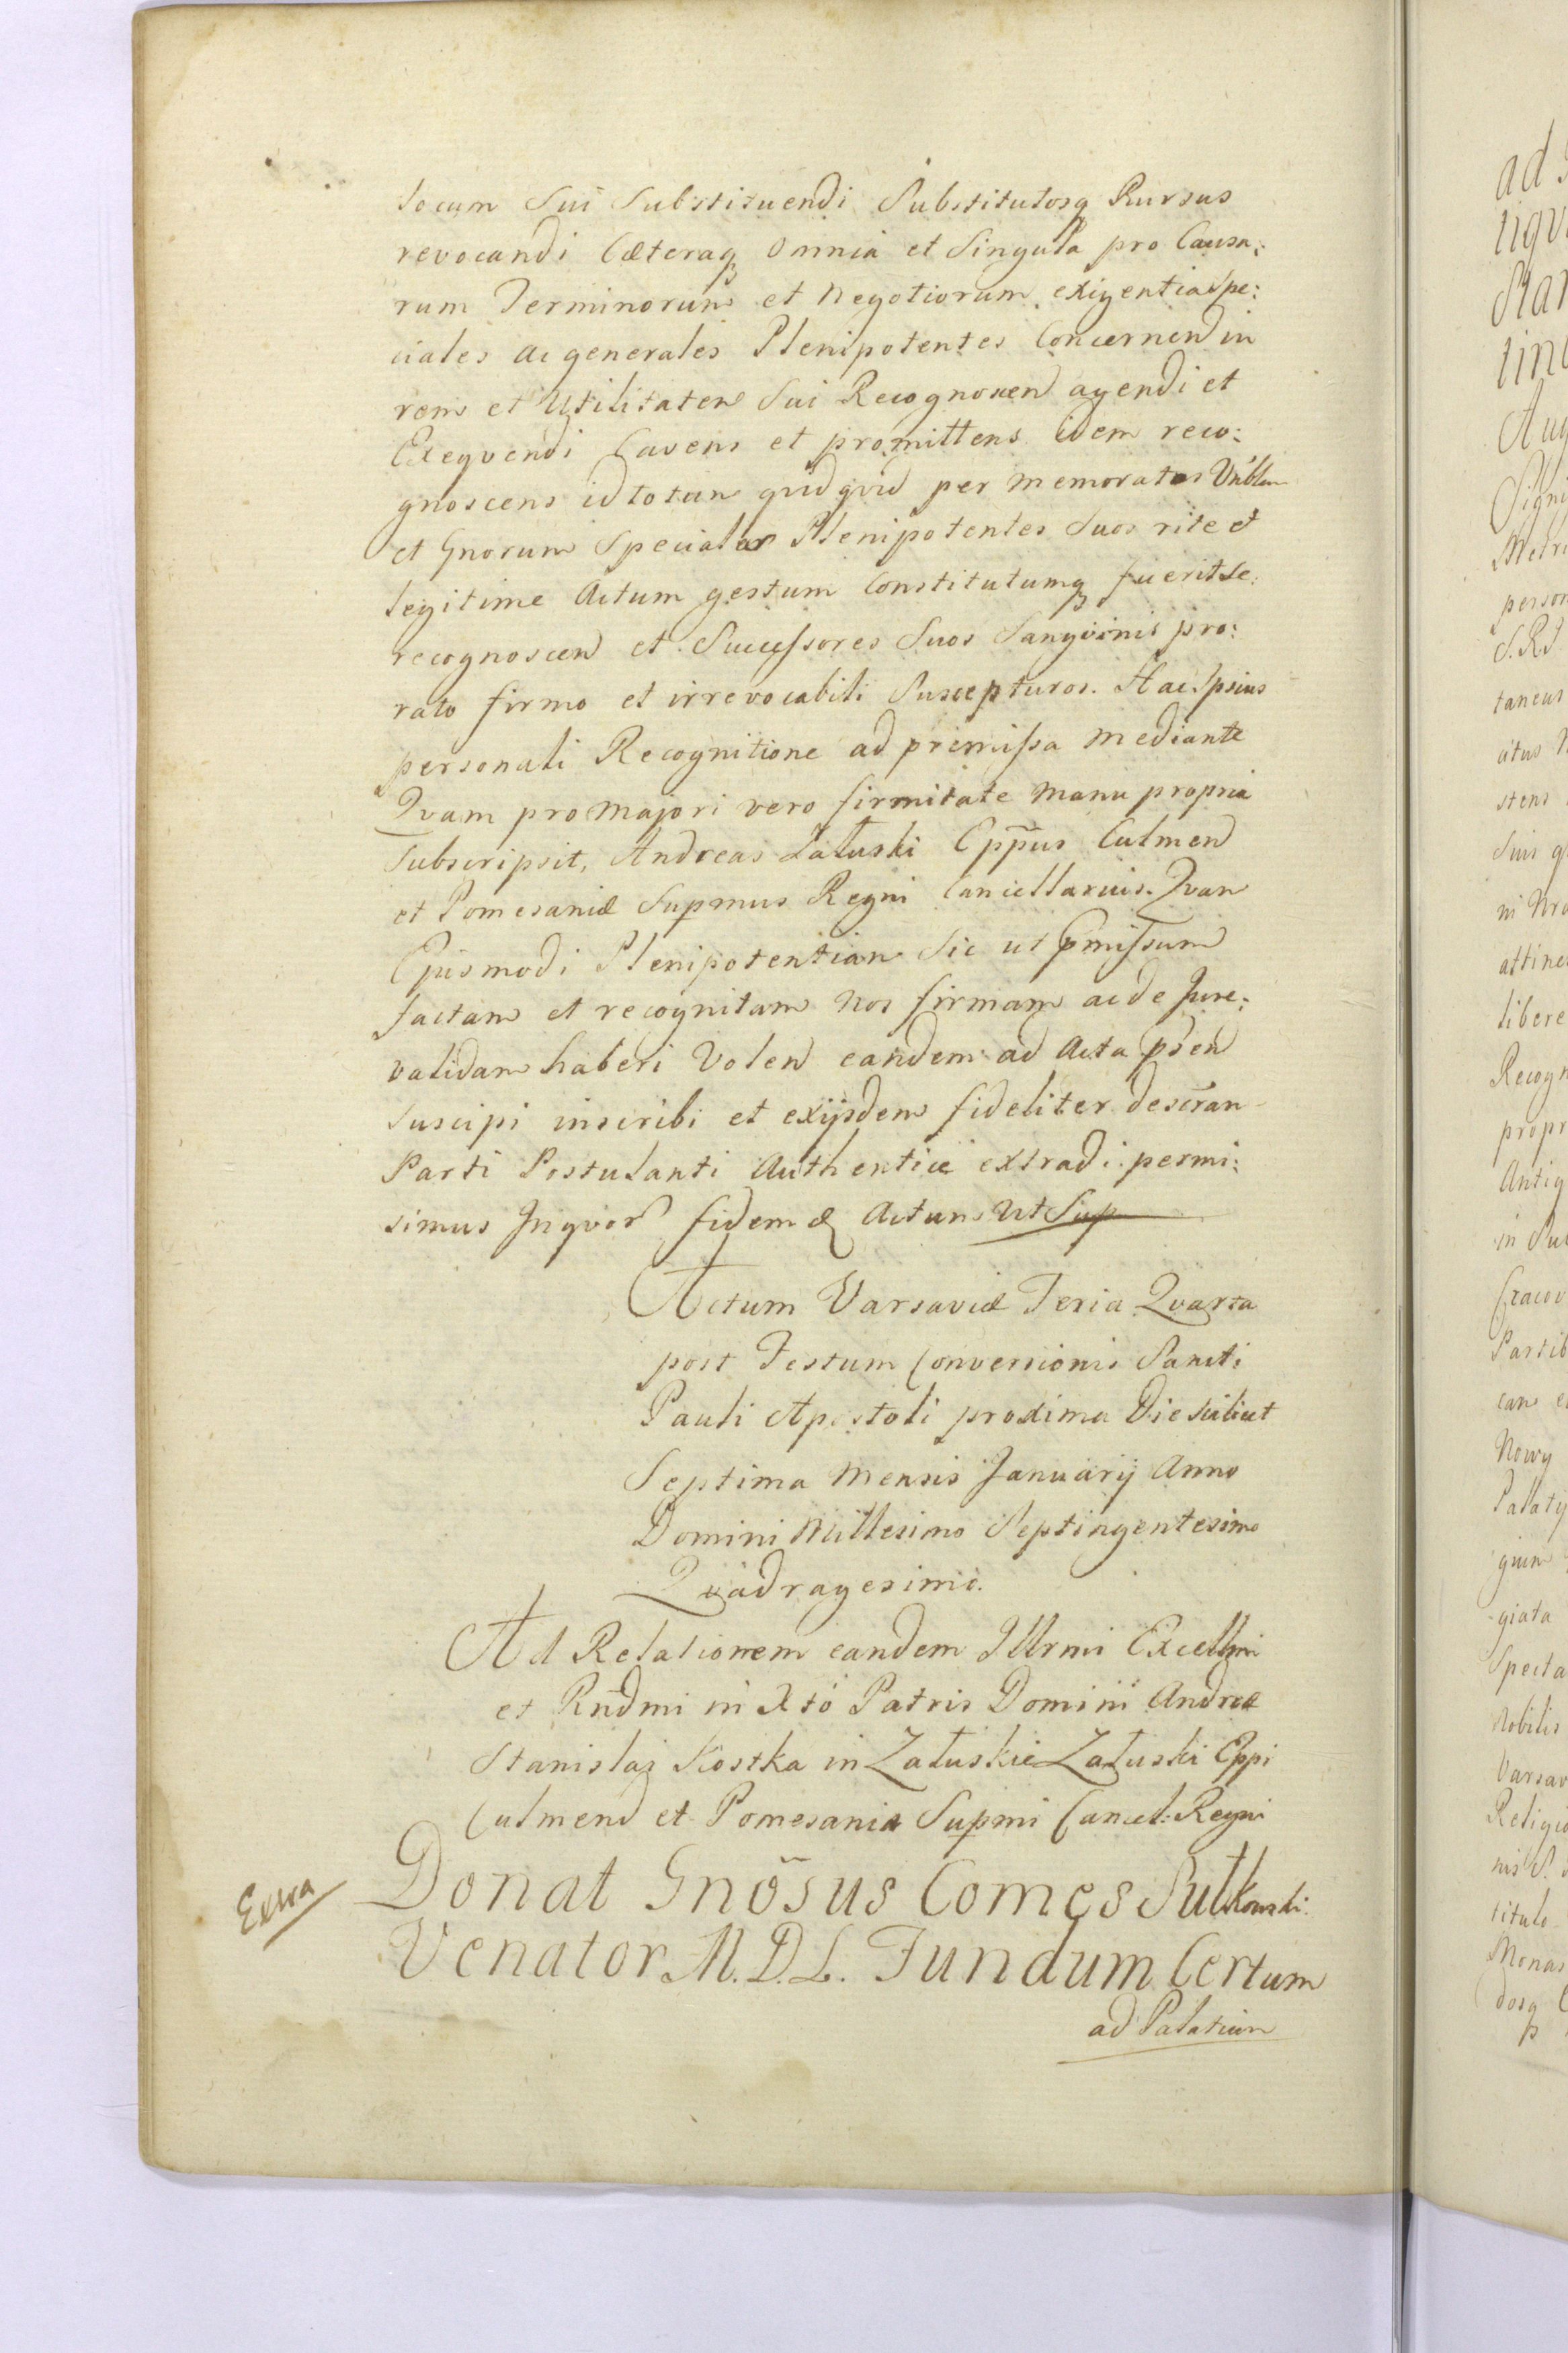 locum Sui Substituendi Substitutosq Rursus
revocandi Cæteraq Omnia et Singula pro Causa:
rum Terminorum et Negotiorum exigentia Spe:
ciales ac generales Plenipotentes Concernend in
rem et Utilitatem Sui Recognoscen agendi et
Exeqvendi Cavens et promittens idem reco:
gnoscens id totum qvidqvid per memoratos Vrŭblem
et Gnorum Speciales Plenipotentes Suos rite et
legitime Actum gestum Constitutumq fuerit se
recognoscen et Successores Suos Sangvinis pro:
rato firmo et irrevocabili Suscepturos. Hac Ipsius
personali Recognitione ad præmissa mediante
Qvam pro majori vero firmitate manu propria
Subscripsit, Andreas Załuski Eppus Culmen
et Pomesaniæ Supmus Regni Cancellarius. Qvam
Ejusmodi Plenipotentiam Sic ut pmissum
factam et recognitam Nos firmam ac de Jure:
validam haberi Volen eandem ad Acta psen
Suscipi inscribi et exijsdem fideliter descram
Parti Postulanti Authenticè extradi permi:
simus Inqvor fidem & Actum Ut Sup
Actum Varsaviæ Feria Qvarta
post Festum Conversionis Sancti
Pauli Apostoli proxima Die scilicet
Septima Mensis Januarij Anno
Domini Millesimo Septingentesimo
Quadragesimo.
Ad Relationem eandem Illrmi Excellmi
et Rndmi in Xto Patris Domini Andreæ
Stanislai Kostka in Załuskie Załuski Eppi
Culmen et Pomesaniæ Supmi Cancel: Regni
Extra
Donat Gnosus Comes Sułkowski
Venator M.D.L. Fundum Certum
ad Palatium
ad
liqv
Star
linc
Aug
Signi
Metri
person
S.R.
taneus
atus
stens
Suis q
ni Nro
attine
libere
Recogn
propr
Antiq
in Pub
Cracov
Partib
cum
Nowy
Palaty
gium
giata
Specta
Nobilis
Varsav
Religio
nis S.
titulo
Monas
dosq